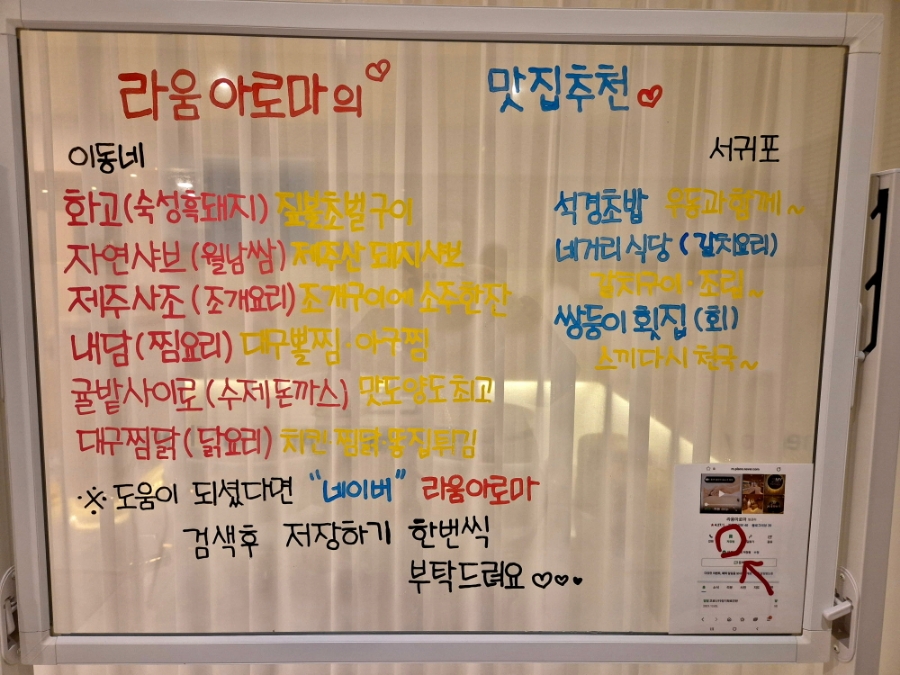 라움 아로마의 맛집추천
이동네
화고(숙성흑돼지) 짚불초벌구이
자연샤브(월남쌈) 제주산 돼지샤브
제주사조(조개요리) 조개구이에 소주한잔
내담(찜요리) 대구뽈찜·아구찜
귤밭사이로(수제돈까스) 맛도양도최고
대구찜닭(닭요리) 치킨·찜닭·똥집튀김
서귀포
석경초밥 우동과함께~
네거리식당(갈치요리)
갈치구이·조림~
쌍둥이횟집(회)
스끼다시천국~
※도움이 되셨다면 "네이버" 라움아로마
검색후 저장하기 한번씩
부탁드려요♡♡♥